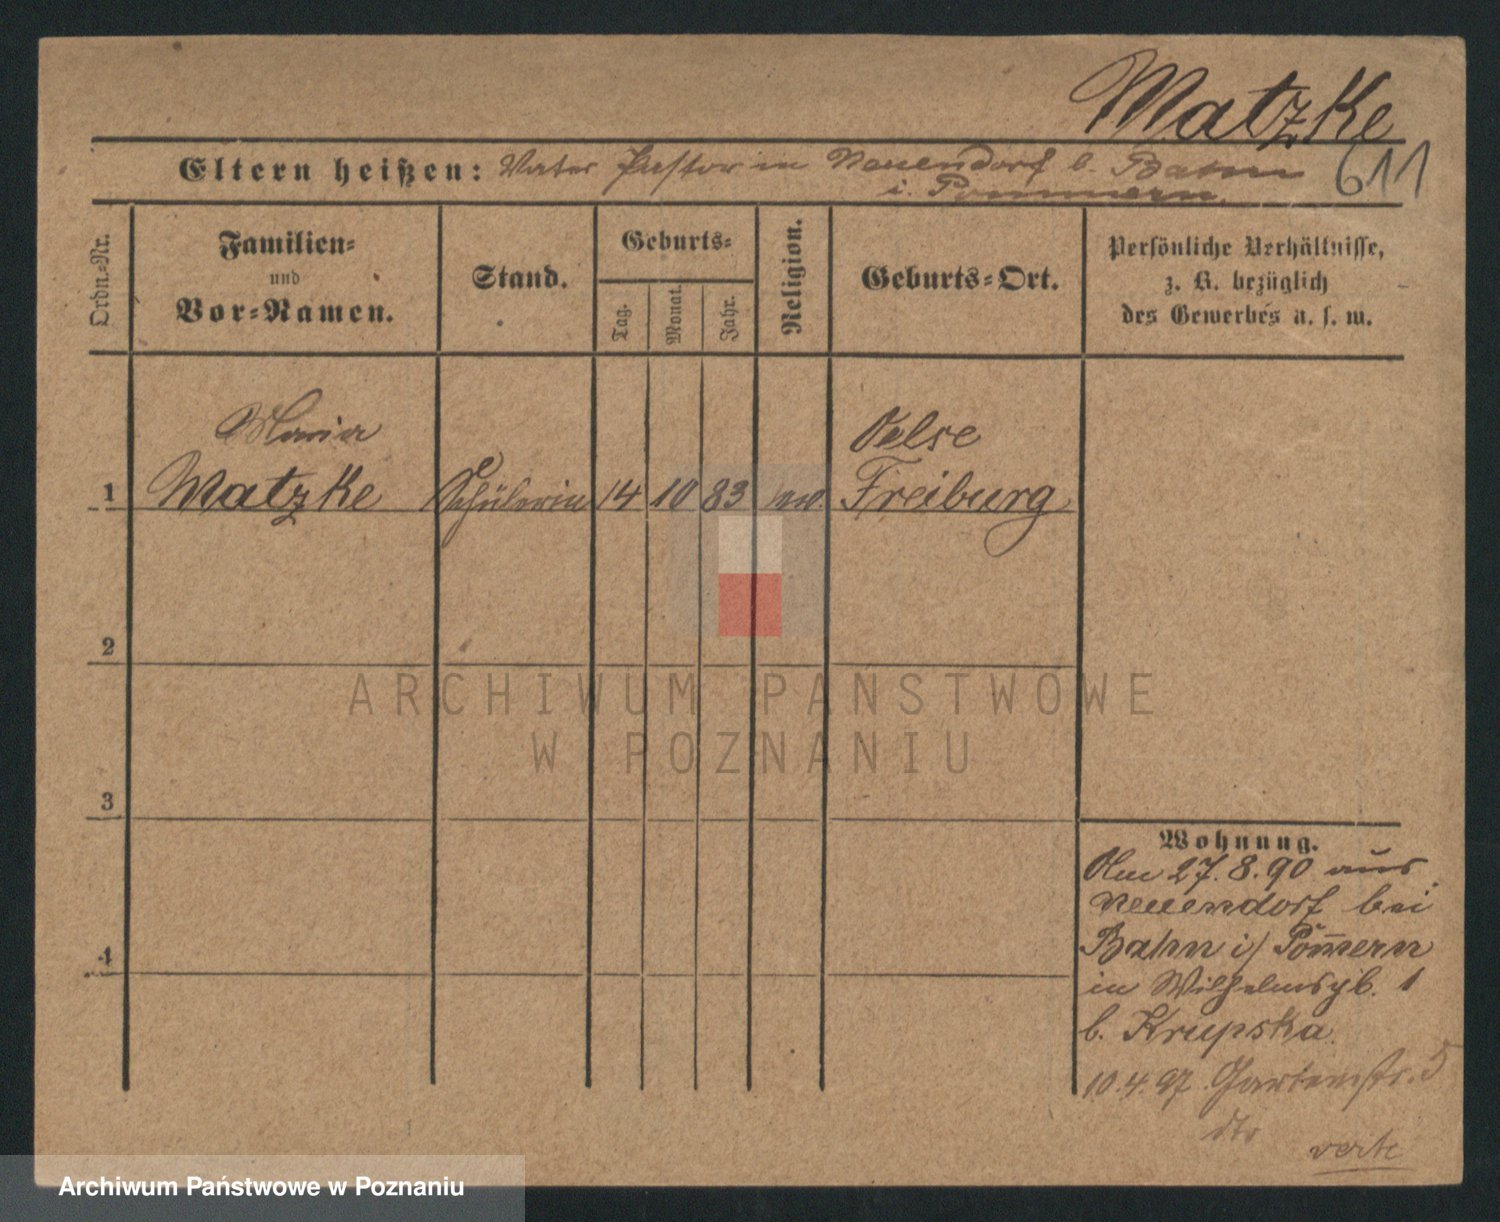 Matzke
611
Eltern heißen: Vater Pastor in Neuendorf b. Bahn
i. Pommern.
Ordn.-Nr.
Familien-
und
Vor-Namen.
Stand.
Geburts-
Tag.
Monat.
Jahr.
Religion.
Geburts-Ort.
Persönliche Verhältnisse,
z. B. bezüglich
des Gewerbes u. s. w.
Maria
Oelse
1 Matzke Schülerin 14 10 83 ev. Freiburg
2
3
4
Wohnung.
Am 27.8.90 aus
Neuendorf bei
Bahn i/ Pom̄ern
in Wilhelmspl. 1
b. Krupska.
10.4.97 Gartenstr. 5
dto
verte
ARCHIWUM PAŃSTWOWE
W POZNANIU
Archiwum Państwowe w Poznaniu